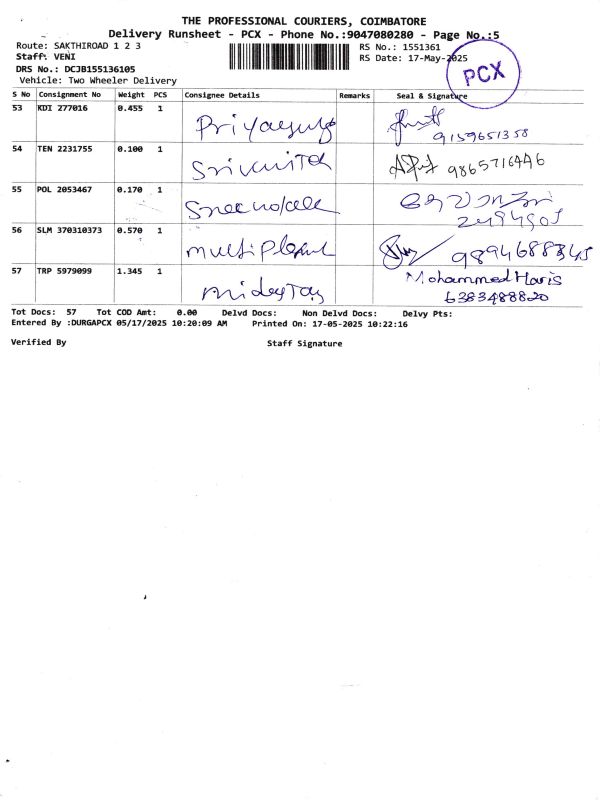 THE PROFESSIONAL COURIERS, COIMBATORE
Delivery Runsheet - PCX - Phone No.:9047080280 - Page No.:5
Route: SAKTHIROAD 1 2 3
RS No.: 1551361
Staff: VENI
RS Date: 17-May-2025
DRS No.: DCJB155136105
Vehicle: Two Wheeler Delivery
PCX
S No Consignment No Weight PCS Consignee Details Remarks Seal & Signature
53 KDI 277016 0.455 1
9159651358
54 TEN 2231755 0.100 1 9865716446
55 POL 2053467 0.170 1
56 SLM 370310373 0.570 1 9894688345
57 TRP 5979099 1.345 1 Mohammed Haris
6383488820
Tot Docs: 57 Tot COD Amt: 0.00 Delvd Docs: Non Delvd Docs: Delvy Pts:
Entered By :DURGAPCX 05/17/2025 10:20:09 AM Printed On: 17-05-2025 10:22:16
Verified By Staff Signature